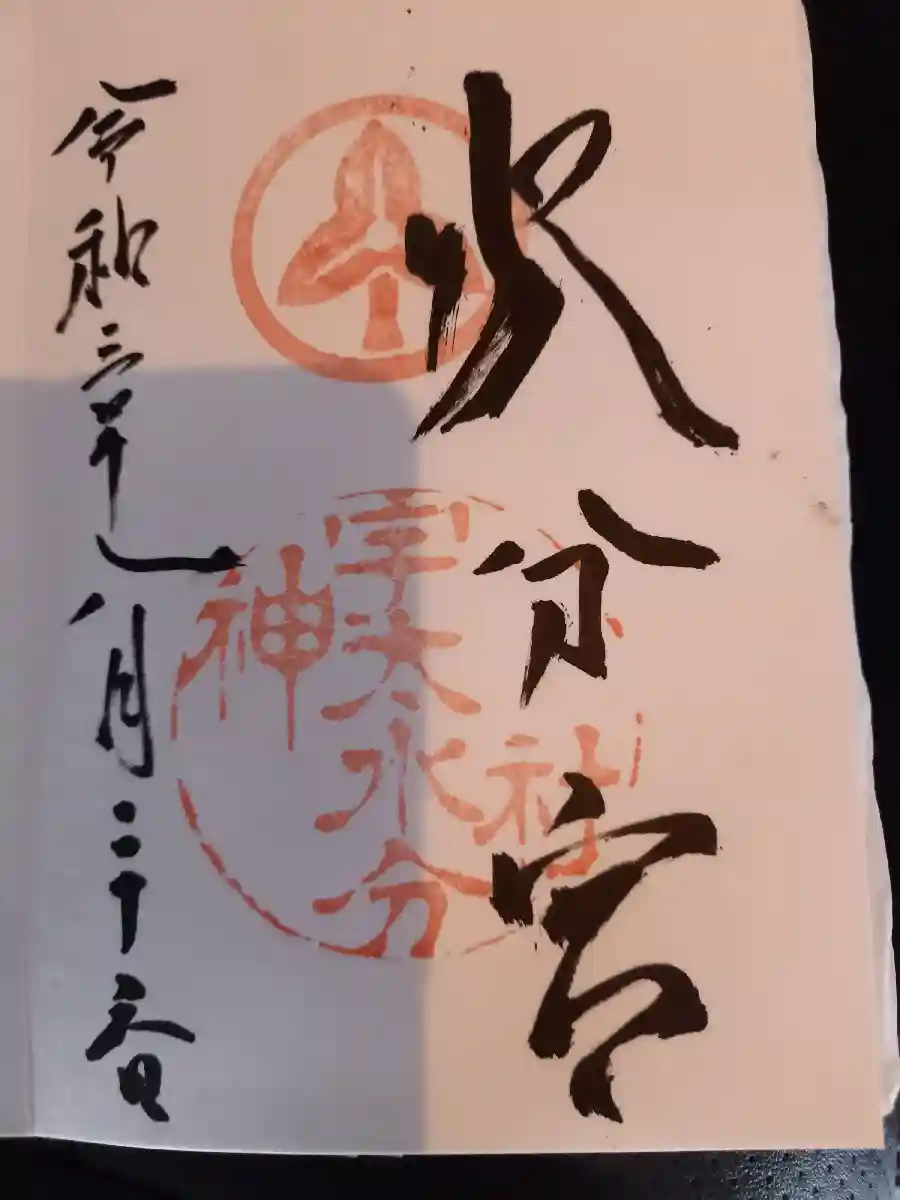 水分宮
宇太水分
神社
令和三年八月二十六日